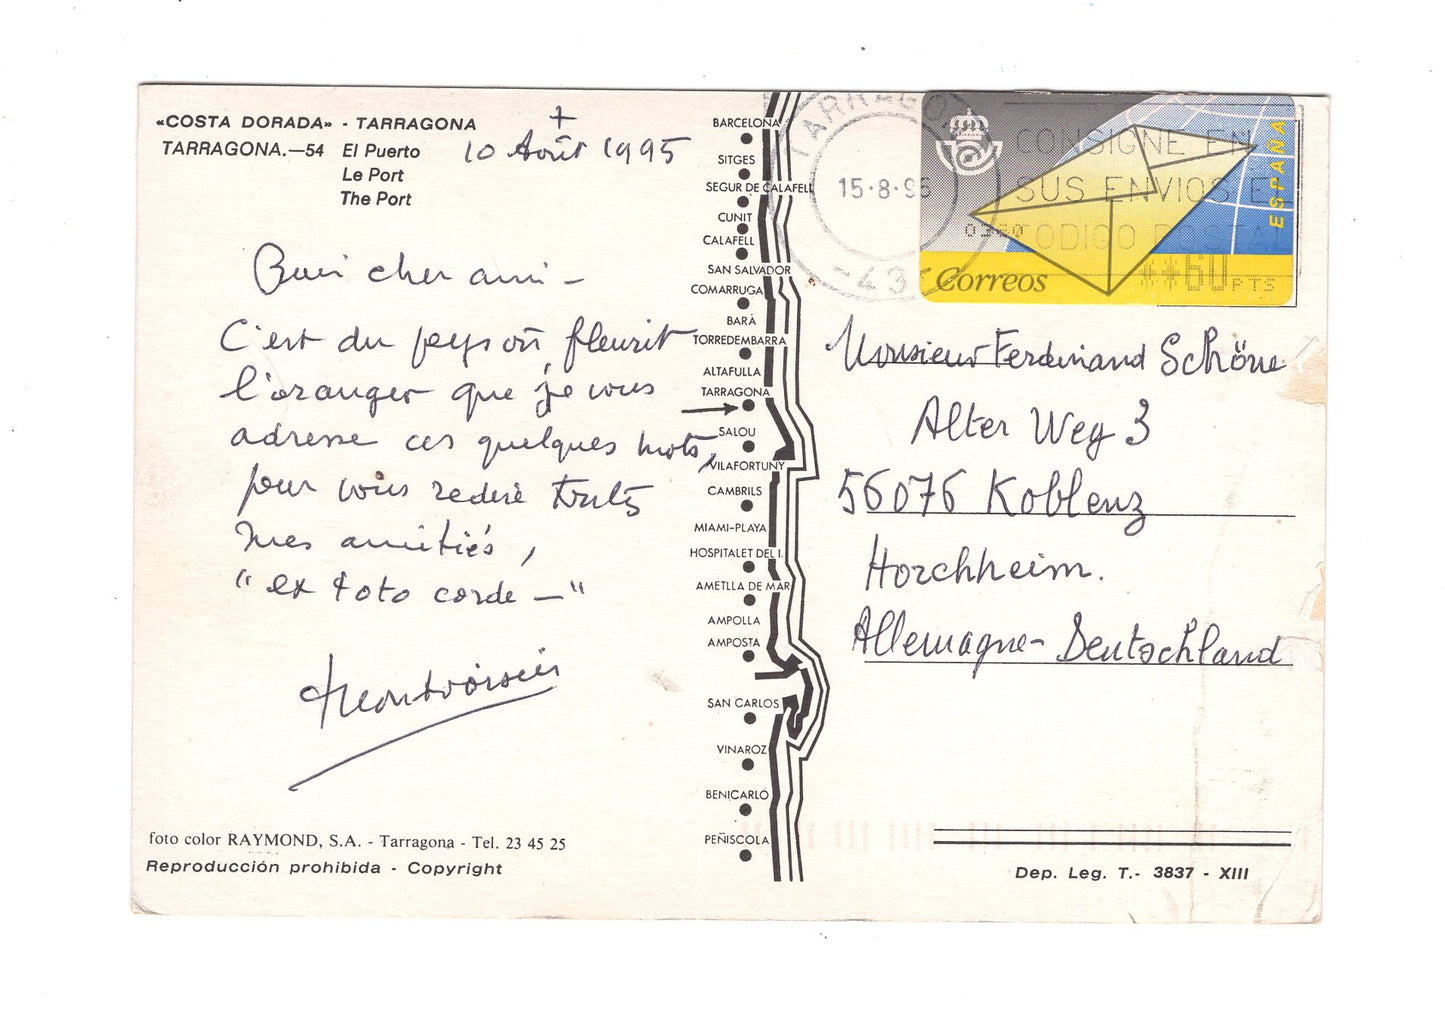 «COSTA DORADA» - TARRAGONA
TARRAGONA.—54 El Puerto
Le Port
The Port
+
10 Août 1995
cher ami -
C'est du pays où fleurit
l'oranger que je vous
adresse ces quelques mots,
pour vous redire toutes
mes amitiés,
"ex toto corde —"
foto color RAYMOND, S.A. - Tarragona - Tel. 23 45 25
Reproducción prohibida - Copyright
BARCELONA
SITGES
SEGUR DE CALAFELL
CUNIT
CALAFELL
SAN SALVADOR
COMARRUGA
BARÀ
TORREDEMBARRA
ALTAFULLA
TARRAGONA
SALOU
VILAFORTUNY
CAMBRILS
MIAMI-PLAYA
HOSPITALET DEL I.
AMETLLA DE MAR
AMPOLLA
AMPOSTA
SAN CARLOS
VINAROZ
BENICARLÓ
PEÑISCOLA
TARRAGONA
15·8·95
-43-
CONSIGNE EN
SUS ENVIOS EL
CODIGO POSTAL
ESPAÑA
Correos
**60 PTS
Monsieur Ferdinand Schöne
Alter Weg 3
56076 Koblenz
Horchheim.
Allemagne - Deutschland
Dep. Leg. T.- 3837 - XIII